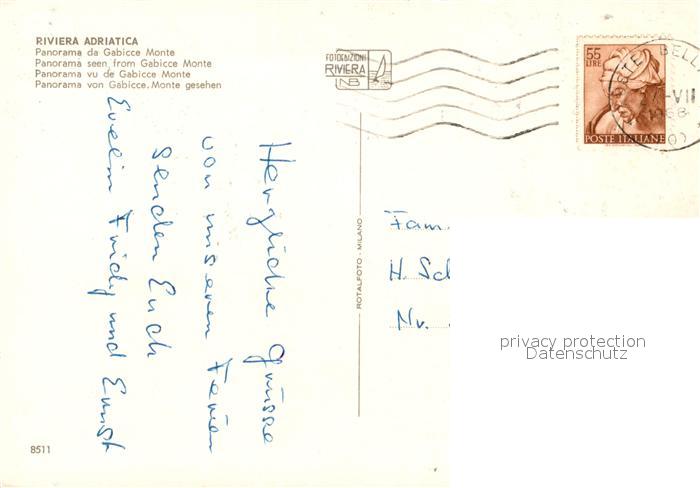 RIVIERA ADRIATICA
Panorama da Gabicce Monte
Panorama seen, from Gabicce Monte
Panorama vu de Gabicce Monte
Panorama von Gabicce, Monte gesehen
FOTOEDIZIONI
RIVIERA
NB
55
LIRE
POSTE ITALIANE
BELL
-VII
1968
Herzliche Grüsse
von unseren Ferien
senden Euch
Evelin Fridy und Ernst
ROTALFOTO - MILANO
Fam.
H. Sch
Nr.
privacy protection
Datenschutz
8511